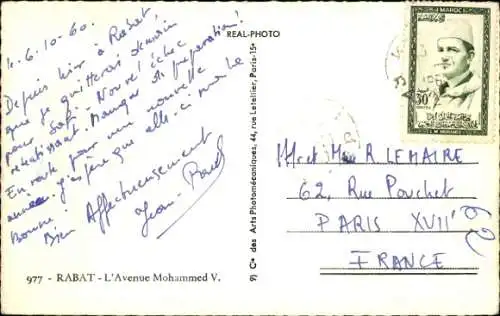 L. 6.10.60.
Depuis hier à Rabat
que je quitterai demain
pour Safi. Nouvel échec
retentissant. Manque de préparation!
En route pour une nouvelle
année. J'espère que elle-ci sera la
Bonne!
Bien Affectueusement
Jean
REAL-PHOTO
MAROC
30F
S.M. MOHAMMED V
Mr et Mme R. LEMAIRE
62, Rue Pouchet
PARIS XVII°
FRANCE
Cie des Arts Photomécaniques, 44, rue Letellier, Paris-15e
977 - RABAT - L'Avenue Mohammed V.